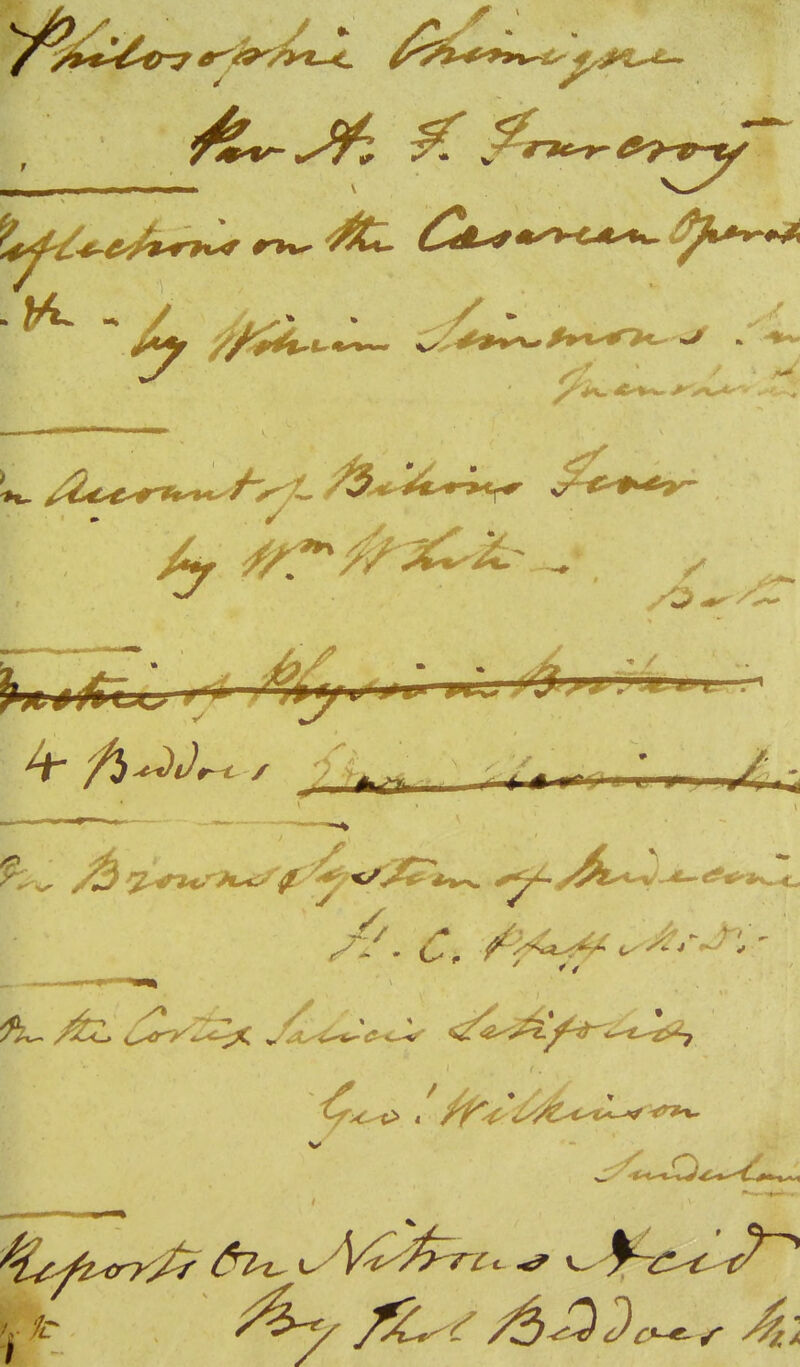 Philosophie Chimique
Par A. F. Fourcroy
Reflections on the Cæsarean Operat
- &c - by William Simmons
Manchester
n Account of Bilious Fever
by Wm. White -
Bath
Practice of Physic in Britain
4 Beddoes
On Browns System of Medecine
H. C. Pfaff M.D.
On the Cortex Salicis Latifoliæ
Geo! Wilkinson
Sunderlan
Reports On Nitrous Acid
&c By Tho! Beddoes